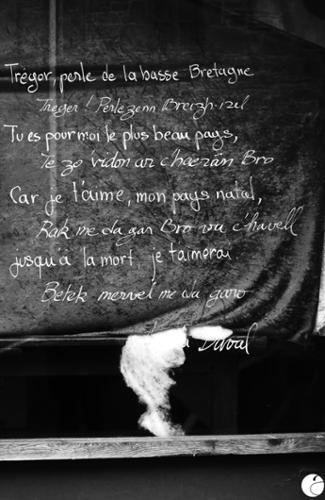 Trégor, perle de la basse Bretagne
Treger ! Perlezenn Breizh-izel
Tu es pour moi le plus beau pays,
Te zo 'vidon ar c'haerañ Bro
Car je t'aime, mon pays natal,
Rak me da gar Bro va c'havell
jusqu'à la mort je t'aimerai
Betek mervel me wa garo
Duval